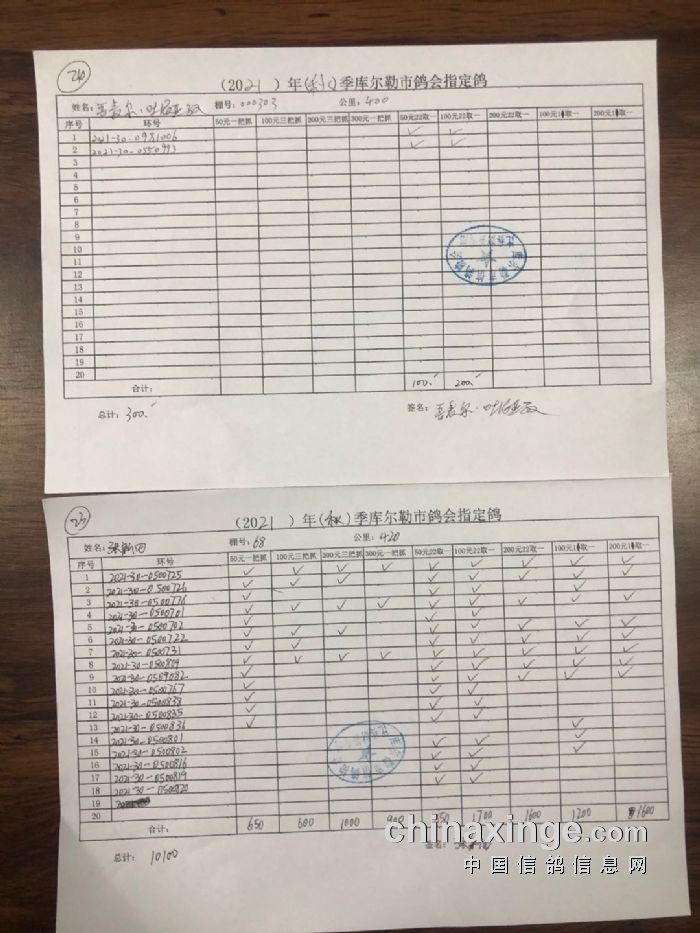 240
(2021 )年(秋)季库尔勒市鸽会指定鸽
姓名: 棚号:000303 公里:400
序号 环号 50元一把抓 100元三把抓 200元三把抓 300元一把抓 50元22取一 100元22取一 200元22取一 100元1取一 200元1取一
1 2021-30-0981006 ✓ ✓
2 2021-30-0550993 ✓ ✓
3
4
5
6
7
8
9
10
11
12
13
14
15
16
17
18
19
20
合计: 100. 200.
总计:300. 签名:
23
(2021 )年(秋)季库尔勒市鸽会指定鸽
姓名: 棚号:68 公里:420
序号 环号 50元一把抓 100元三把抓 200元三把抓 300元一把抓 50元22取一 100元22取一 200元22取一 100元1取一 200元1取一
1 2021-30-0500725
2 2021-30-0500726
3 2021-30-0500776
4 2021-30-0500701
5 2021-30-0500702
6 2021-30-0500722
7 2021-30-0500731
8 2021-30-0500809
9 2021-30-0509082
10 2021-30-0500767
11 2021-30-0500838
12 2021-30-0500835
13 2021-30-0500836
14 2021-30-0500801
15 2021-30-0500802
16 2021-30-0500816
17 2021-30-0500819
18 2021-30-0500820
19
20
合计: 650 600 1000 900 850 1700 1600 1200 1600
总计: 10100 签名:
chinaxinge.com
中国信鸽信息网